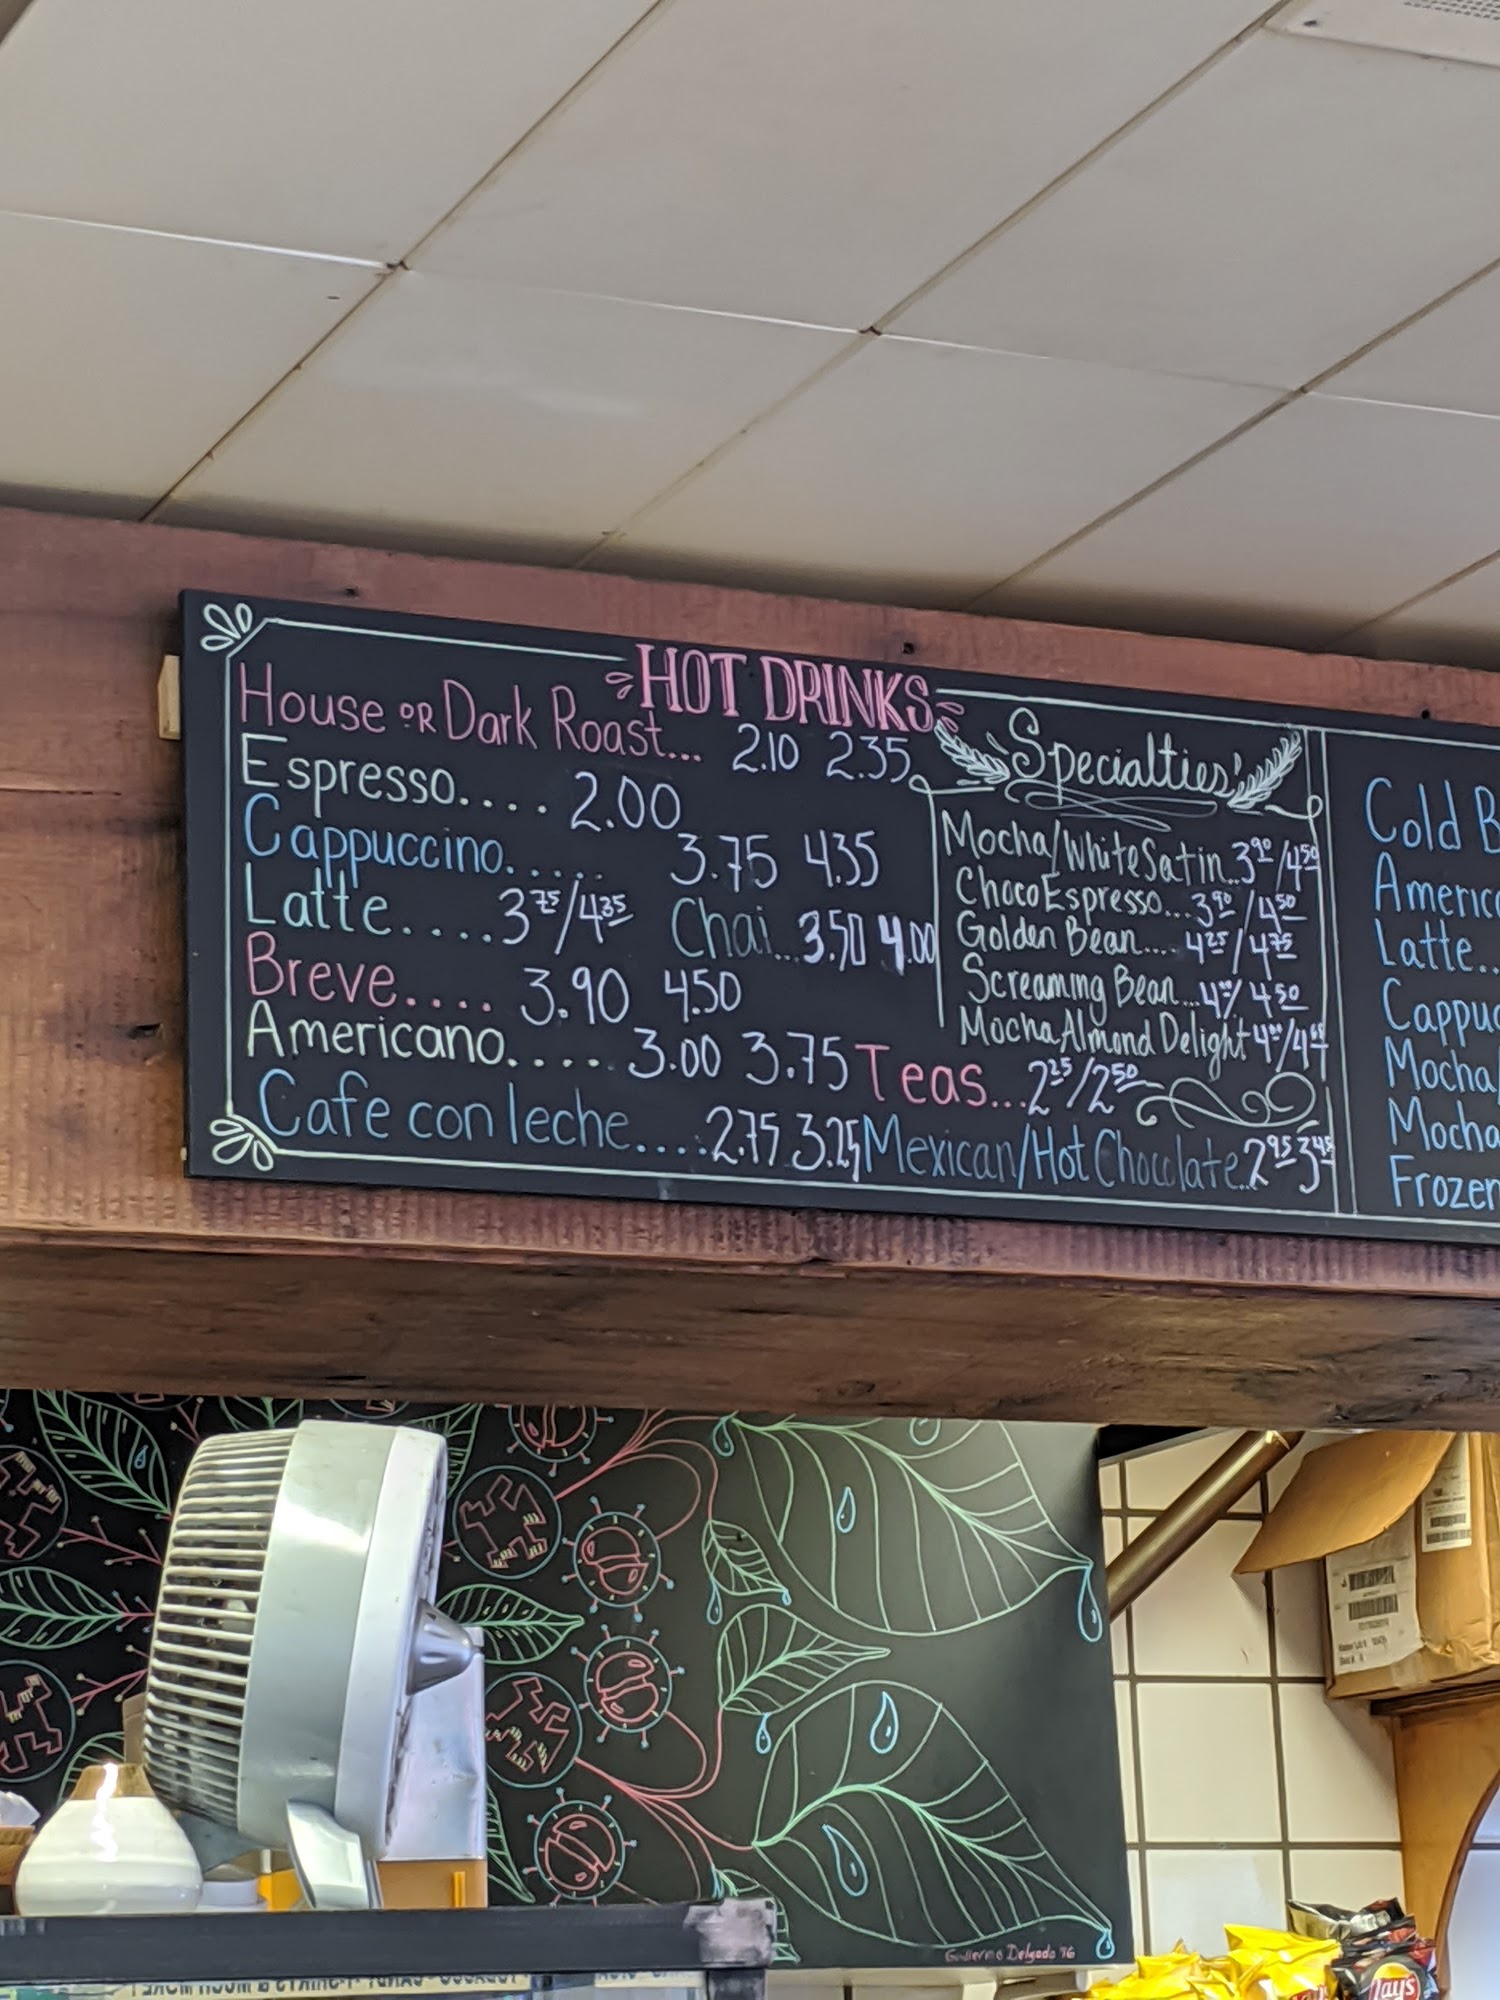 HOT DRINKS
House OR Dark Roast... 2.10 2.35
Espresso.... 2.00
Cappuccino..... 3.75 4.35
Latte.... 3.75/4.35 Chai... 3.50 4.00
Breve.... 3.90 4.50
Americano..... 3.00 3.75
Cafe con leche.... 2.75 3.25
Specialties
Mocha/White Satin.. 3.90/4.50
Choco Espresso... 3.90/4.50
Golden Bean.... 4.25/4.75
Screaming Bean... 4.00/4.50
Mocha Almond Delight
Teas... 2.25/2.50
Mexican/Hot Chocolate... 2.95 3.45
Cold B
Americ
Latte..
Cappuc
Mocha/
Mocha
Frozen
Guillermo Delgado '16
Lay's